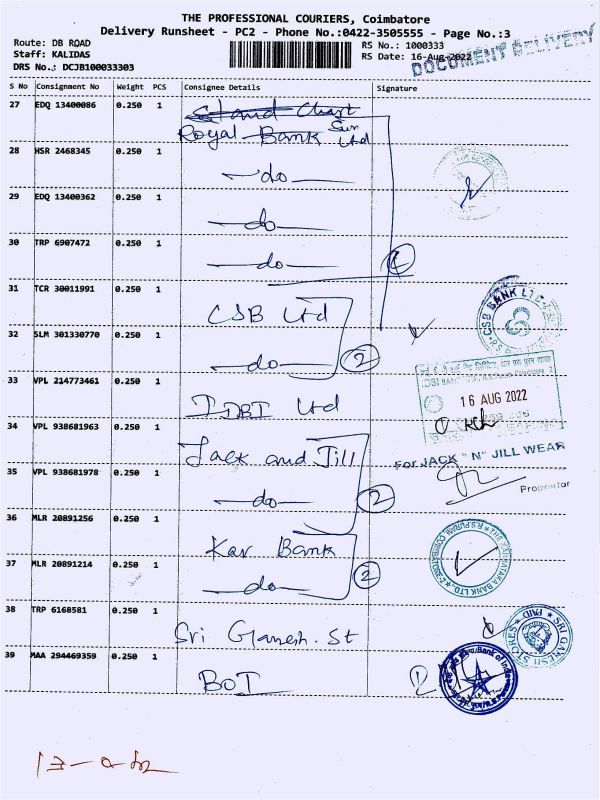 THE PROFESSIONAL COURIERS, Coimbatore
Delivery Runsheet - PC2 - Phone No.:0422-3505555 - Page No.:3
Route: DB ROAD
Staff: KALIDAS
DRS No.: DCJB100033303
RS No.: 1000333
RS Date: 16-Aug-2022
DOCUMENT DELIVERY
S No Consignment No Weight PCS Consignee Details Signature
27 EDQ 13400086 0.250 1
Royal Bank Sun Ltd
28 HSR 2468345 0.250 1 -do-
29 EDQ 13400362 0.250 1 -do-
30 TRP 6907472 0.250 1 -do-
31 TCR 30011991 0.250 1 CSB Ltd
CSB BANK LTD
32 SLM 301330770 0.250 1 -do- 2
33 VPL 214773461 0.250 1 IDBI Ltd
16 AUG 2022
34 VPL 938681963 0.250 1 Jack and Jill
For JACK "N" JILL WEAR
Proprietor
35 VPL 938681978 0.250 1 -do- 2
36 MLR 20891256 0.250 1 Kar Bank
THE KARNATAKA BANK LTD. R.S.PURAM, COIMBATORE
37 MLR 20891214 0.250 1 -do- 2
38 TRP 6168581 0.250 1 Sri Ganesh. St
SRI GANESH STORES PAID
39 MAA 294469359 0.250 1 BOI
Bank of India